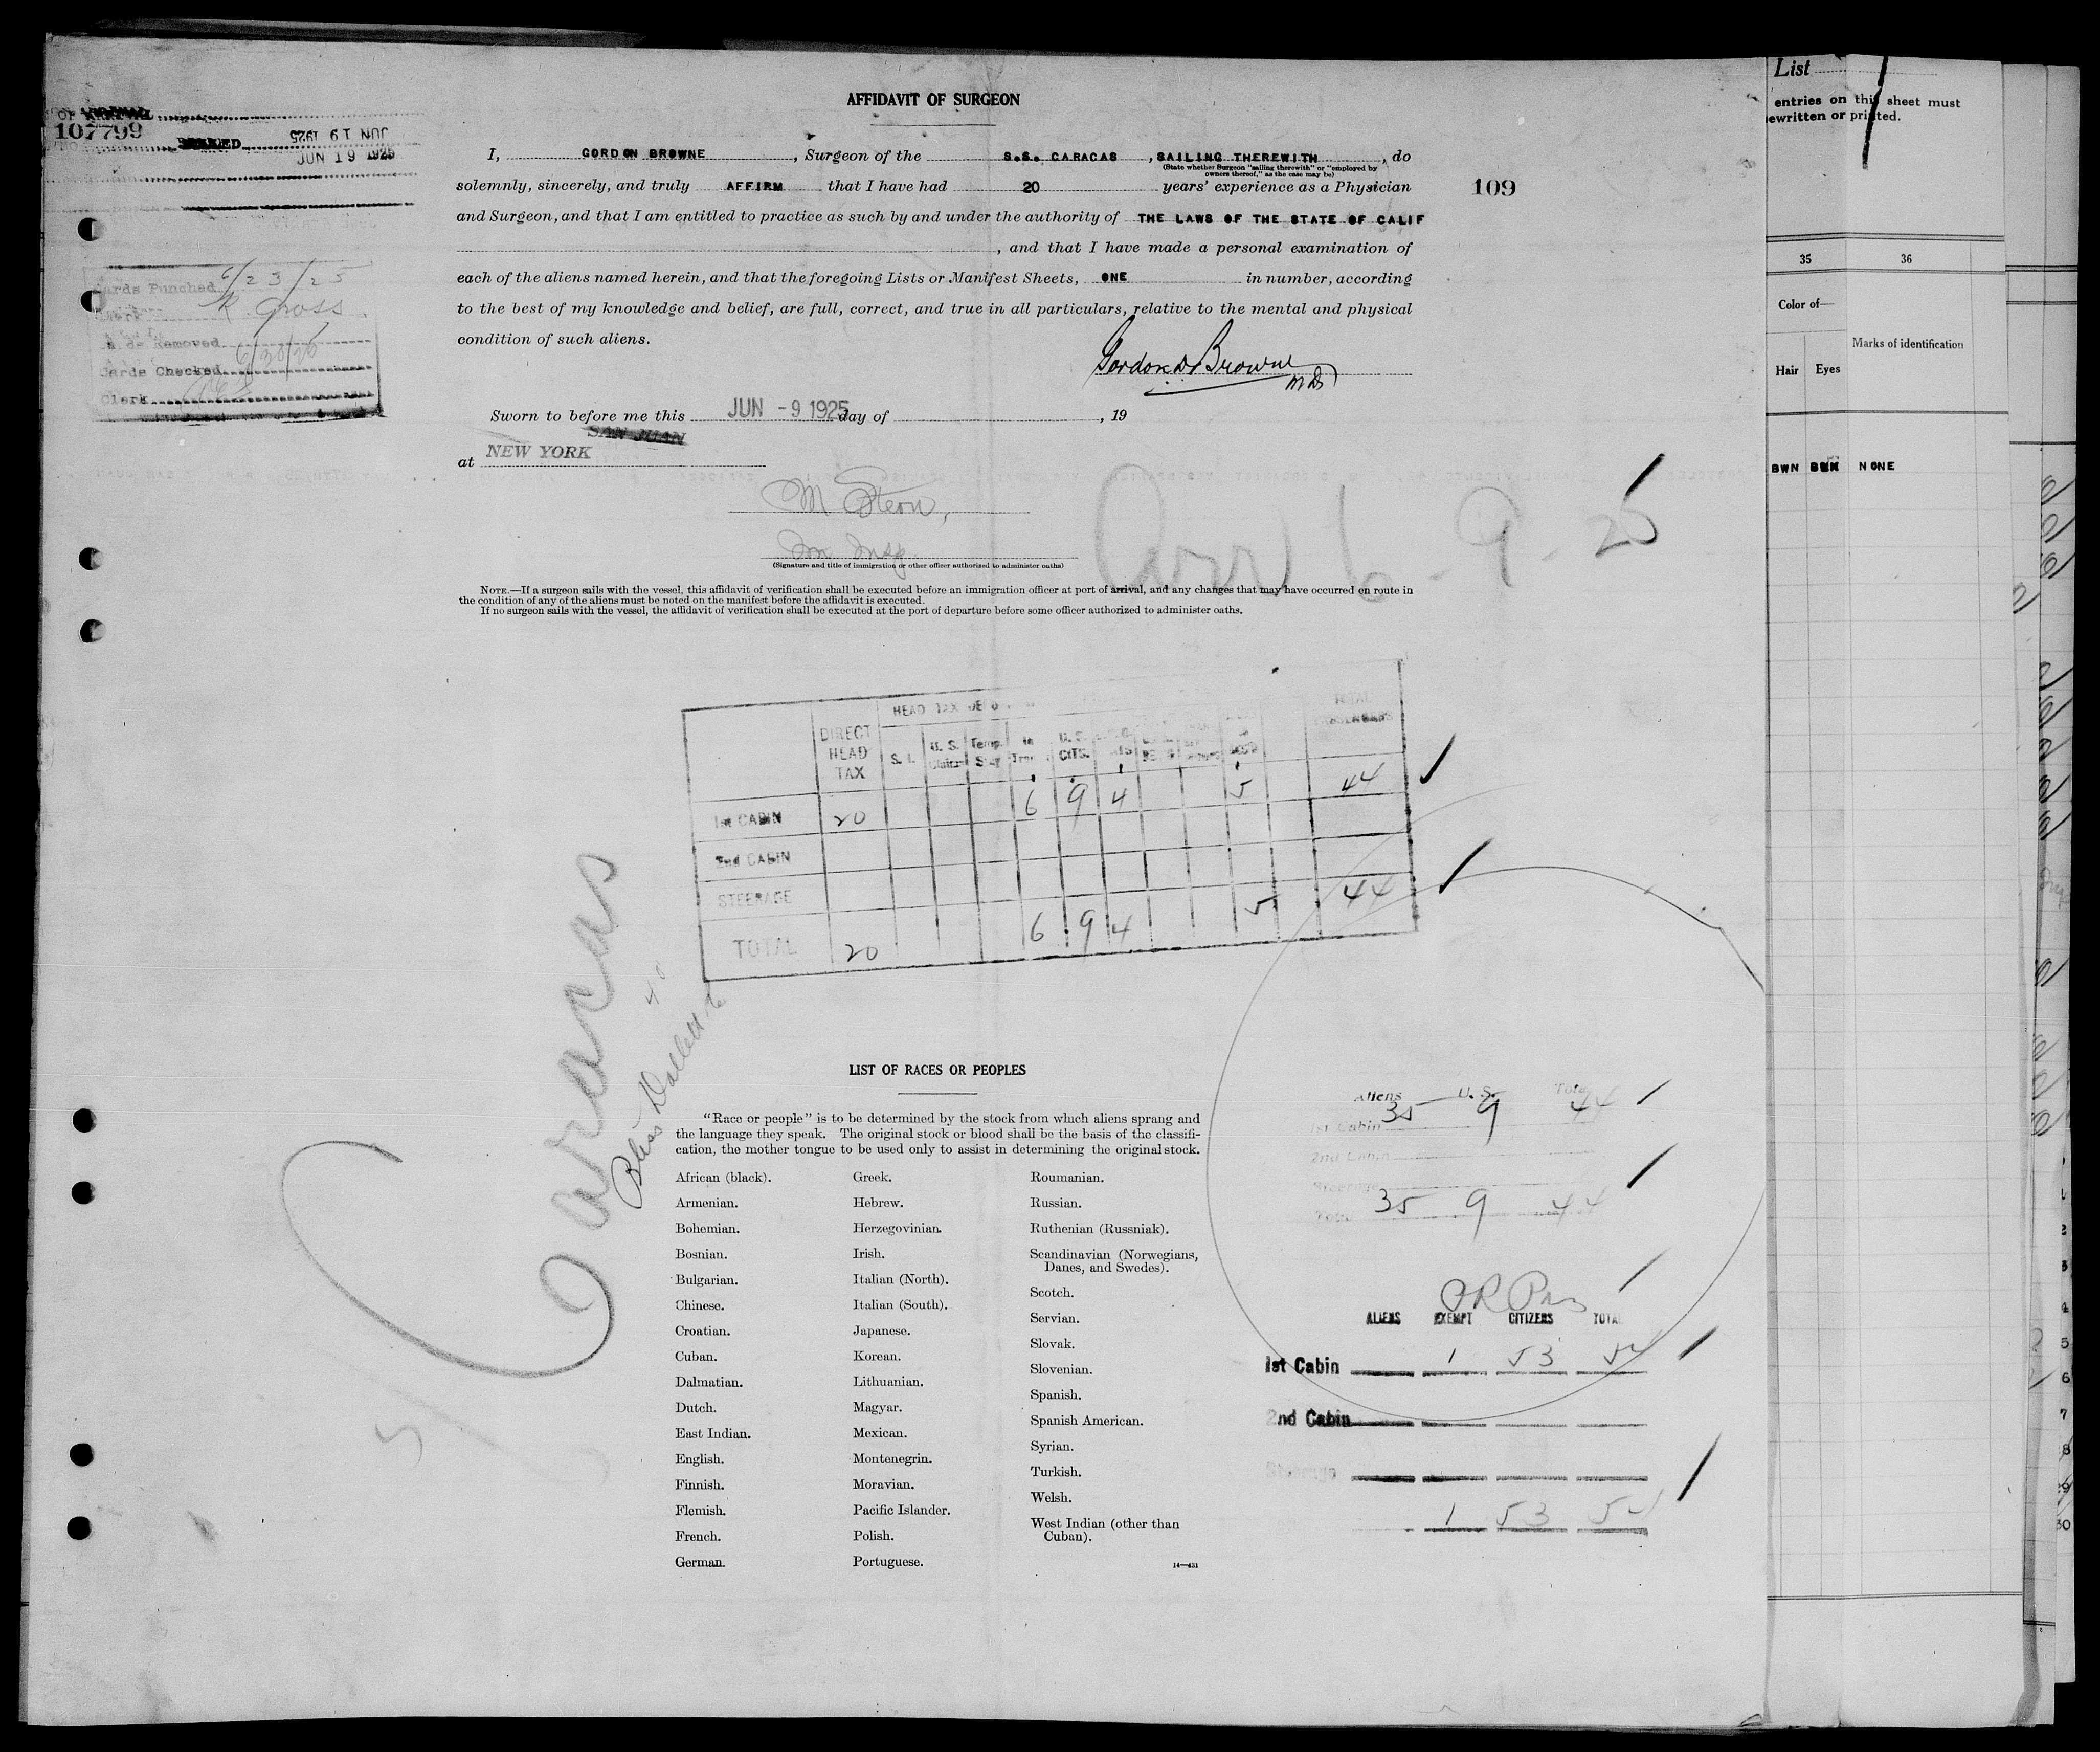 AFFIDAVIT OF SURGEON
OF ARRIVAL
107799
JUN 19 1925
JUN 19 1925
I, GORDON BROWNE, Surgeon of the S.S. CARACAS, SAILING THEREWITH, do
(State whether Surgeon "sailing therewith" or "employed by
owners thereof," as the case may be)
solemnly, sincerely, and truly AFFIRM that I have had 20 years' experience as a Physician
109
and Surgeon, and that I am entitled to practice as such by and under the authority of THE LAWS OF THE STATE OF CALIF
, and that I have made a personal examination of
each of the aliens named herein, and that the foregoing Lists or Manifest Sheets, ONE in number, according
to the best of my knowledge and belief, are full, correct, and true in all particulars, relative to the mental and physical
condition of such aliens.
Gordon D. Browne
M D
Cards Punched 6/23/25
R. Gross
Removed 6/30/25
Cards Checked
Clerk
Sworn to before me this JUN -9 1925 day of , 19
SAN JUAN
at NEW YORK
M Stern,
Im Insp.
(Signature and title of immigration or other officer authorized to administer oaths)
Arr 6-9-25
NOTE.—If a surgeon sails with the vessel, this affidavit of verification shall be executed before an immigration officer at port of arrival, and any changes that may have occurred en route in
the condition of any of the aliens must be noted on the manifest before the affidavit is executed.
If no surgeon sails with the vessel, the affidavit of verification shall be executed at the port of departure before some officer authorized to administer oaths.
HEAD TAX
DIRECT HEAD TAX S. I. U. S. Temp. Stay In U. S. CITS. TOTAL
1st CABIN 20 6 9 4 5 44
2nd CABIN
STEERAGE
TOTAL 20 6 9 4 5 44
Caracas
Bliss Dallett
LIST OF RACES OR PEOPLES
"Race or people" is to be determined by the stock from which aliens sprang and
the language they speak. The original stock or blood shall be the basis of the classifi-
cation, the mother tongue to be used only to assist in determining the original stock.
African (black).
Armenian.
Bohemian.
Bosnian.
Bulgarian.
Chinese.
Croatian.
Cuban.
Dalmatian.
Dutch.
East Indian.
English.
Finnish.
Flemish.
French.
German.
Greek.
Hebrew.
Herzegovinian.
Irish.
Italian (North).
Italian (South).
Japanese.
Korean.
Lithuanian.
Magyar.
Mexican.
Montenegrin.
Moravian.
Pacific Islander.
Polish.
Portuguese.
Roumanian.
Russian.
Ruthenian (Russniak).
Scandinavian (Norwegians,
Danes, and Swedes).
Scotch.
Servian.
Slovak.
Slovenian.
Spanish.
Spanish American.
Syrian.
Turkish.
Welsh.
West Indian (other than
Cuban).
14—431
Aliens U. S. Total
1st Cabin 35 9 44
2nd Cabin
Steerage
Total 35 9 44
ALIENS EXEMPT CITIZENS TOTAL
1st Cabin 1 53 54
2nd Cabin
Steerage
1 53 54
List
entries on this sheet must
ewritten or printed.
35 36
Color of—
Marks of identification
Hair Eyes
BWN NONE
5
6
7
8
30